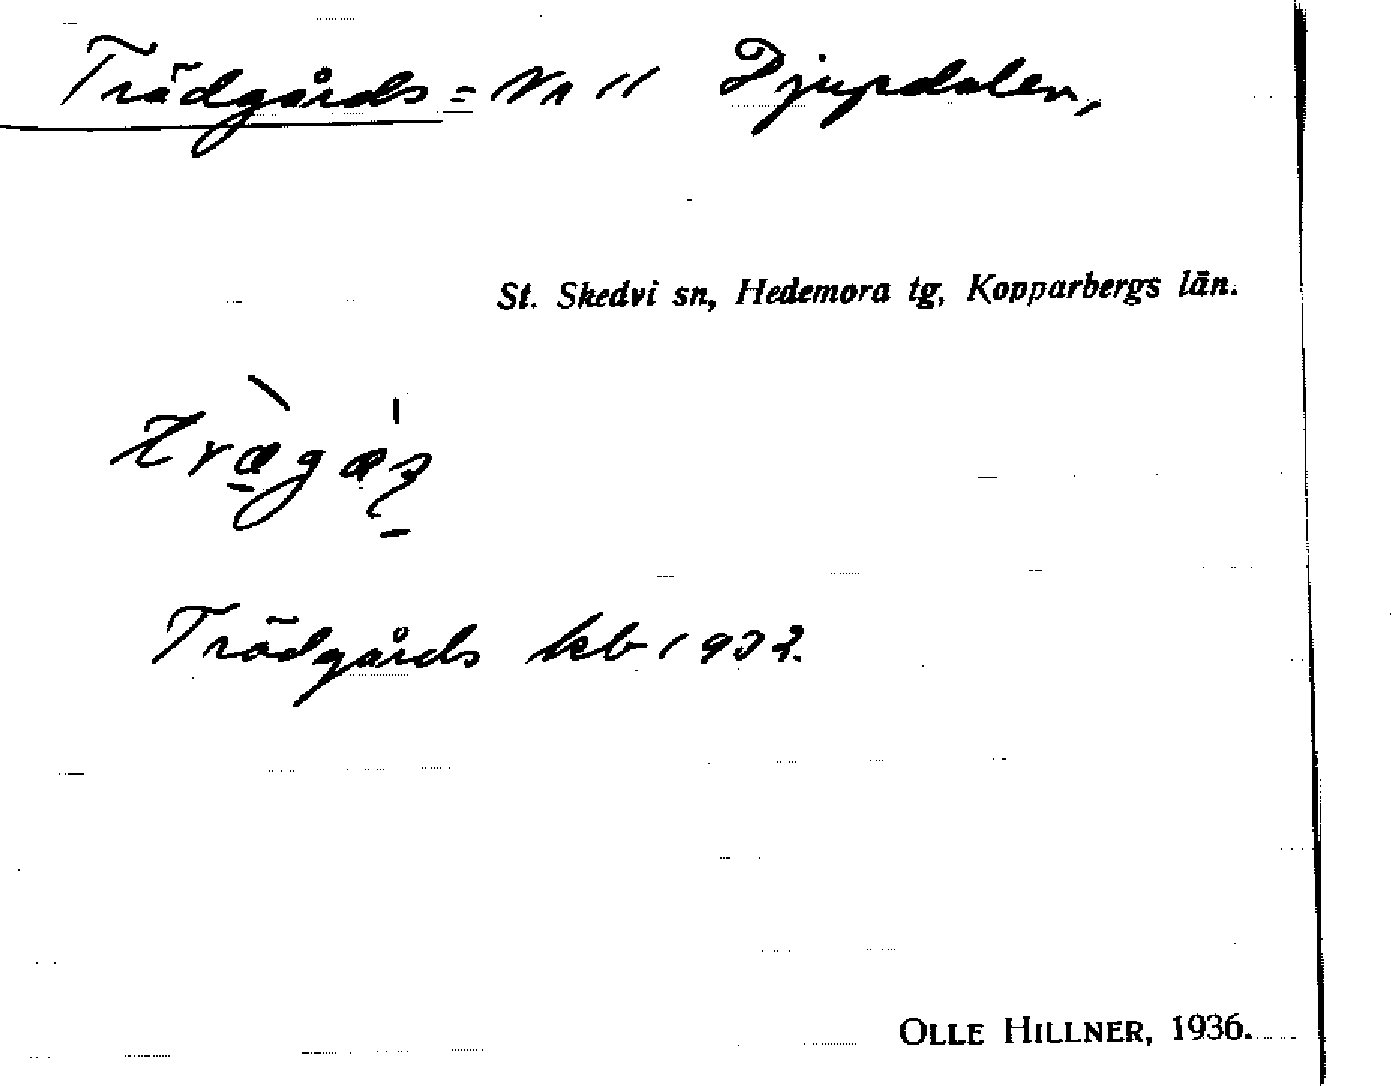 Trädgårds= Nr 11 Djupdalen,
St. Skedvi sn, Hedemora tg, Kopparbergs län.
Trädgårds kb 1932.
OLLE HILLNER, 1936.